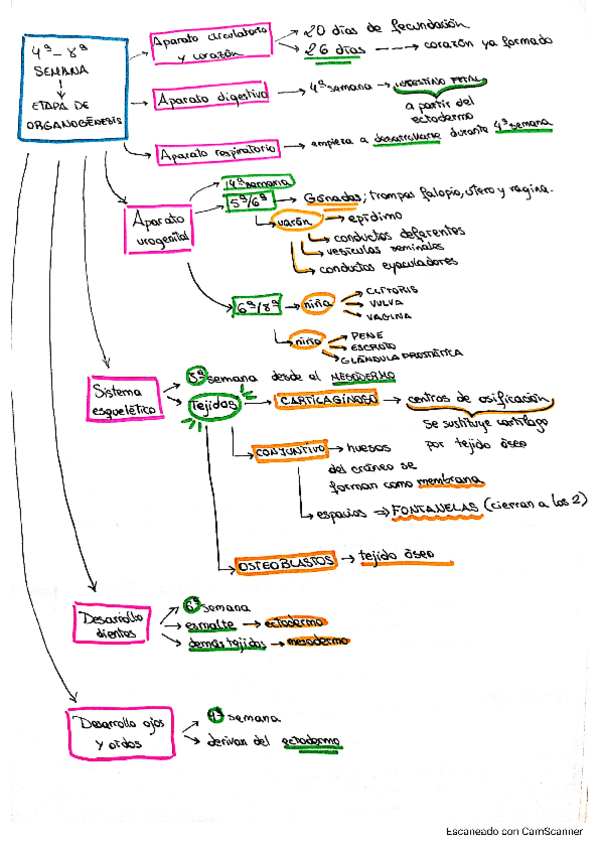 4ª-8ª
SEMANA
ETAPA DE
ORGANOGÉNESIS
Aparato circulatorio
y corazón
20 días de fecundación
26 días → corazón ya formado
Aparato digestivo → 4ª semana → INTESTINO FETAL
a partir del
ectodermo
Aparato respiratorio → empieza a desarrollarse durante 4ª semana
Aparato
urogenital
4ª semana
5ª/6ª → Gónadas; trompas falopio, útero y vagina.
varón → epídimo
conductos deferentes
vesículas seminales
conductos eyaculadores
6ª/8ª → niña → CLÍTORIS
VULVA
VAGINA
niño → PENE
ESCROTO
GLÁNDULA PROSTÁTICA
Sistema
esquelético
5ª semana desde el MESODERMO
Tejidos → CARTILAGINOSO → centros de osificación
se sustituye cartílago
por tejido óseo
CONJUNTIVO → huesos
del cráneo se
forman como membrana
espacios ⇒ FONTANELAS (cierran a los 2)
OSTEOBLASTOS → tejido óseo
Desarrollo
dientes
6ª semana
esmalte → ectodermo
demás tejidos → mesodermo
Desarrollo ojos
y oídos
4ª semana
derivan del ectodermo
Escaneado con CamScanner